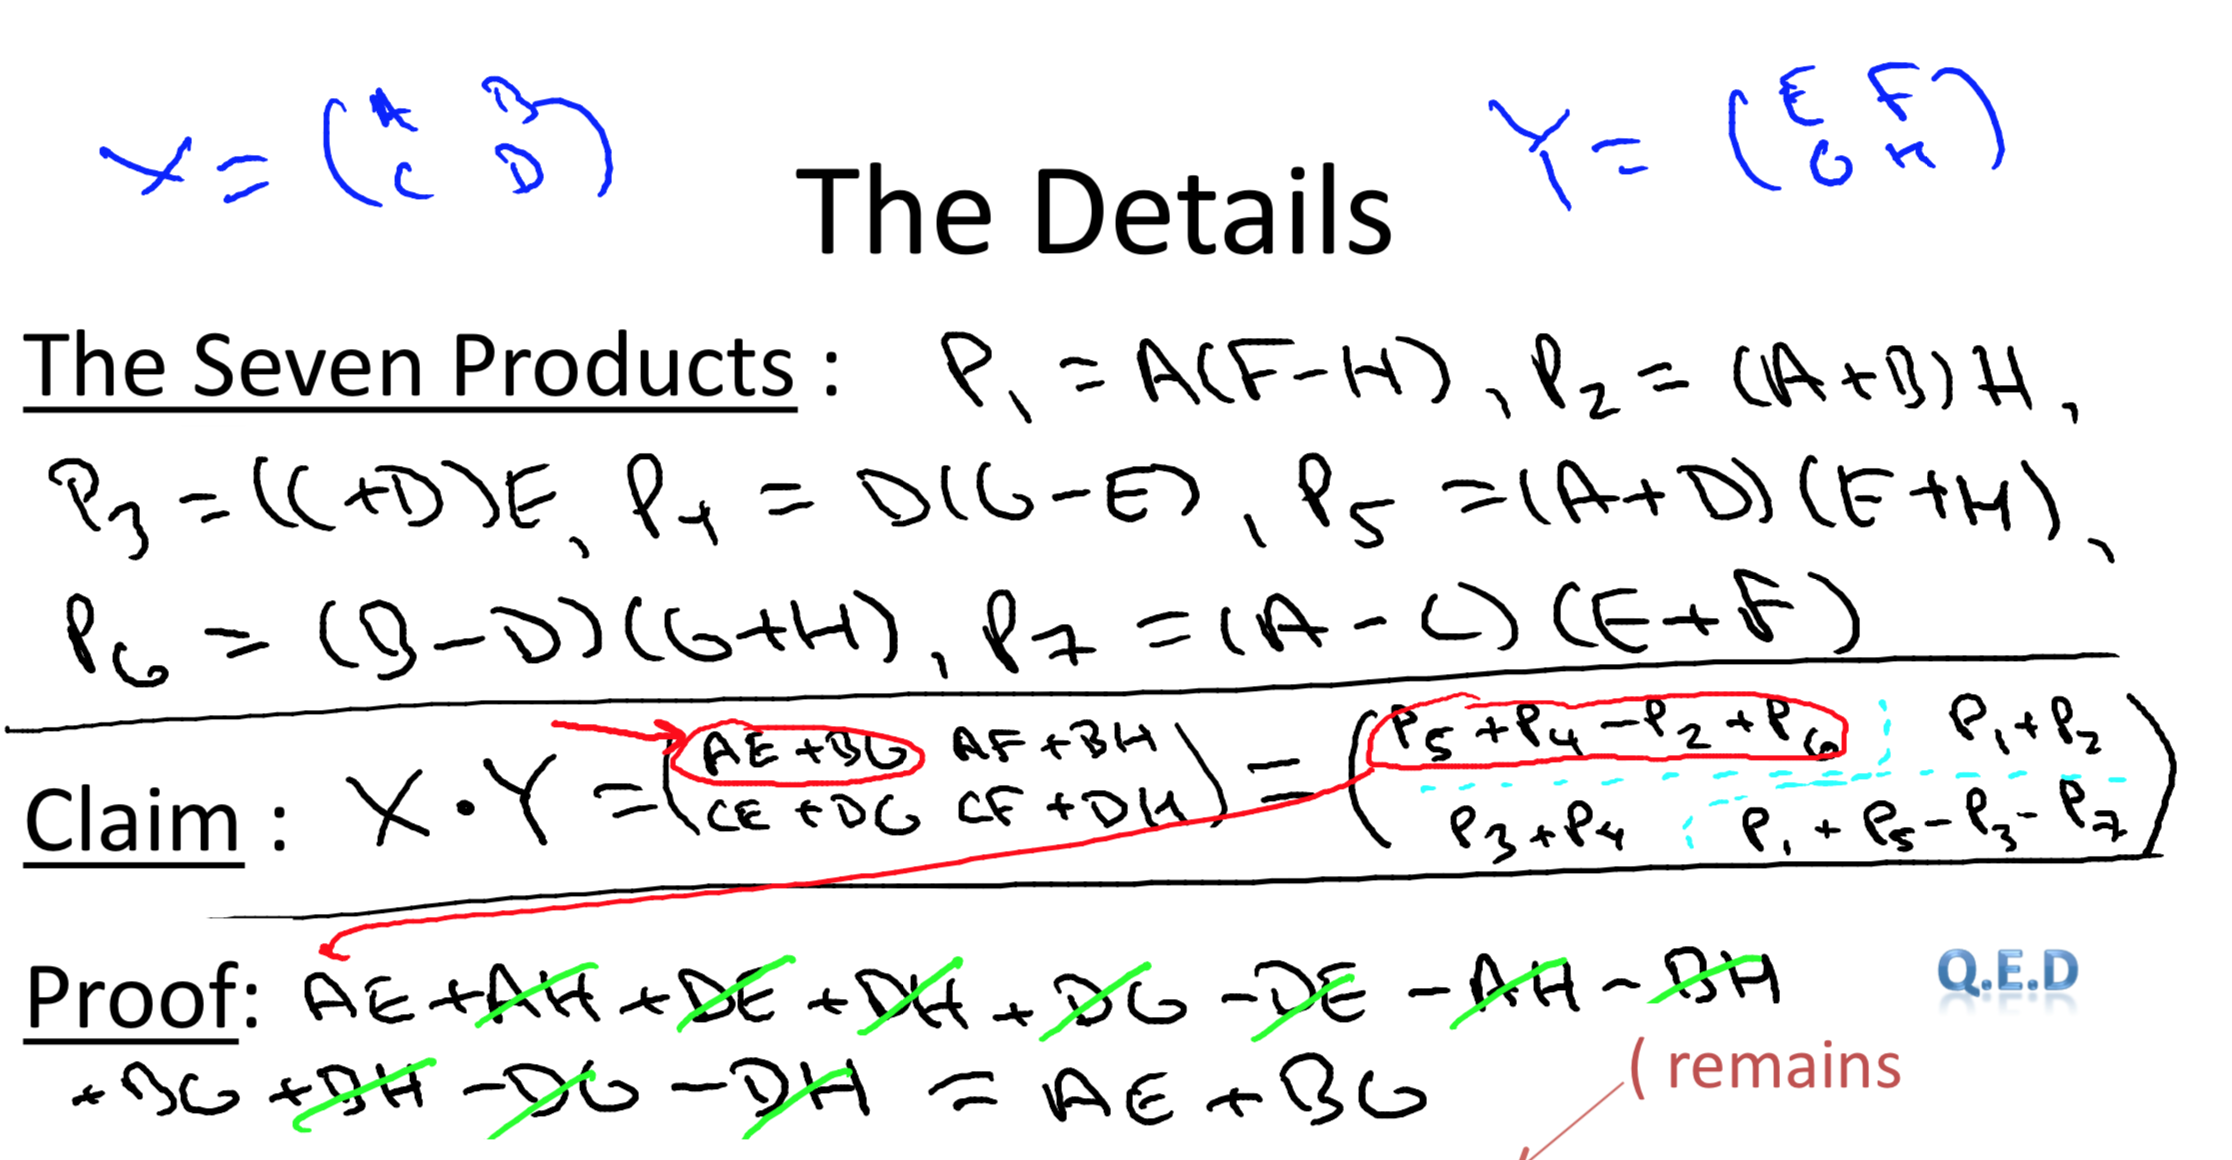 X = (A B
C D)
Y = (E F
G H)
The Details
The Seven Products : P₁ = A(F-H), P₂ = (A+B)H,
P₃ = (C+D)E, P₄ = D(G-E), P₅ = (A+D)(E+H),
P₆ = (B-D)(G+H), P₇ = (A-C)(E+F)
Claim : X · Y = (AE+BG AF+BH
CE+DG CF+DH) = (P₅+P₄-P₂+P₆ P₁+P₂
P₃+P₄ P₁+P₅-P₃-P₇)
Proof: AE+AH+DE+DH+DG-DE-AH-BH
+BG+BH-DG-DH = AE+BG
Q.E.D
( remains